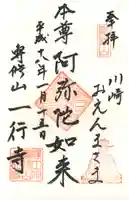 奉拝
川崎
おえんまさま
本尊阿弥陀如来
平成十八年一月十五日
専修山一行寺